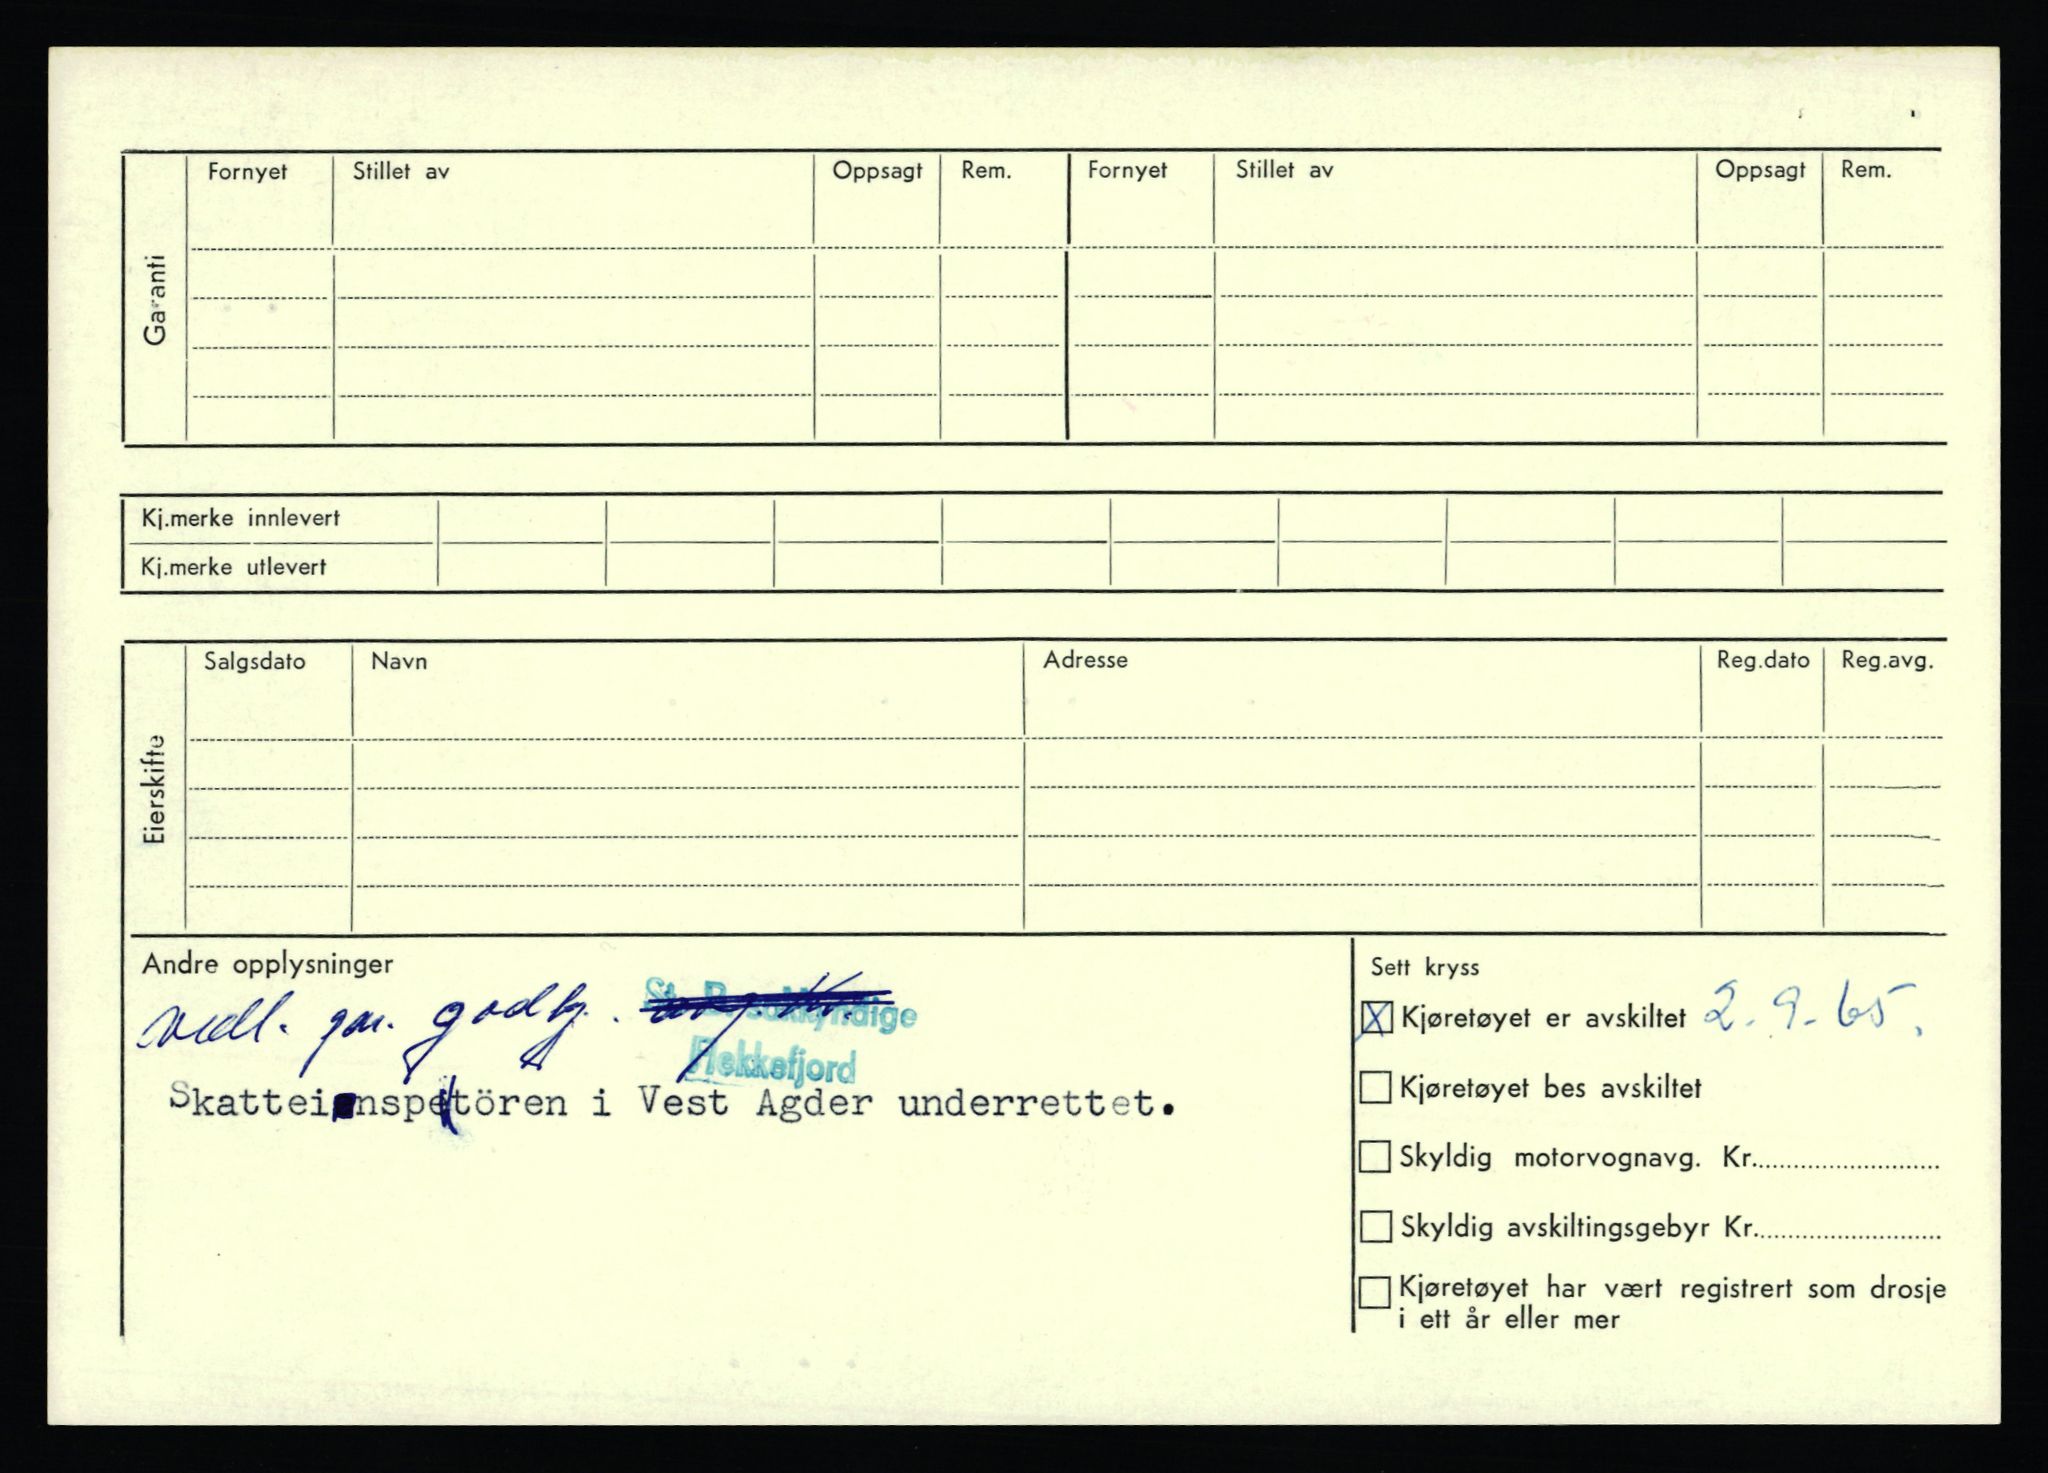 Garanti
Fornyet Stillet av Oppsagt Rem. Fornyet Stillet av Oppsagt Rem.
Kj.merke innlevert
Kj.merke utlevert
Eierskifte
Salgsdato Navn Adresse Reg.dato Reg.avg.
Andre opplysninger
vedl. gar. godkj. St. Bilsakkyndige
Flekkefjord
Skatteinspektören i Vest Agder underrettet.
Sett kryss
X Kjøretøyet er avskiltet 2.9.65.
Kjøretøyet bes avskiltet
Skyldig motorvognavg. Kr.
Skyldig avskiltingsgebyr Kr.
Kjøretøyet har vært registrert som drosje
i ett år eller mer